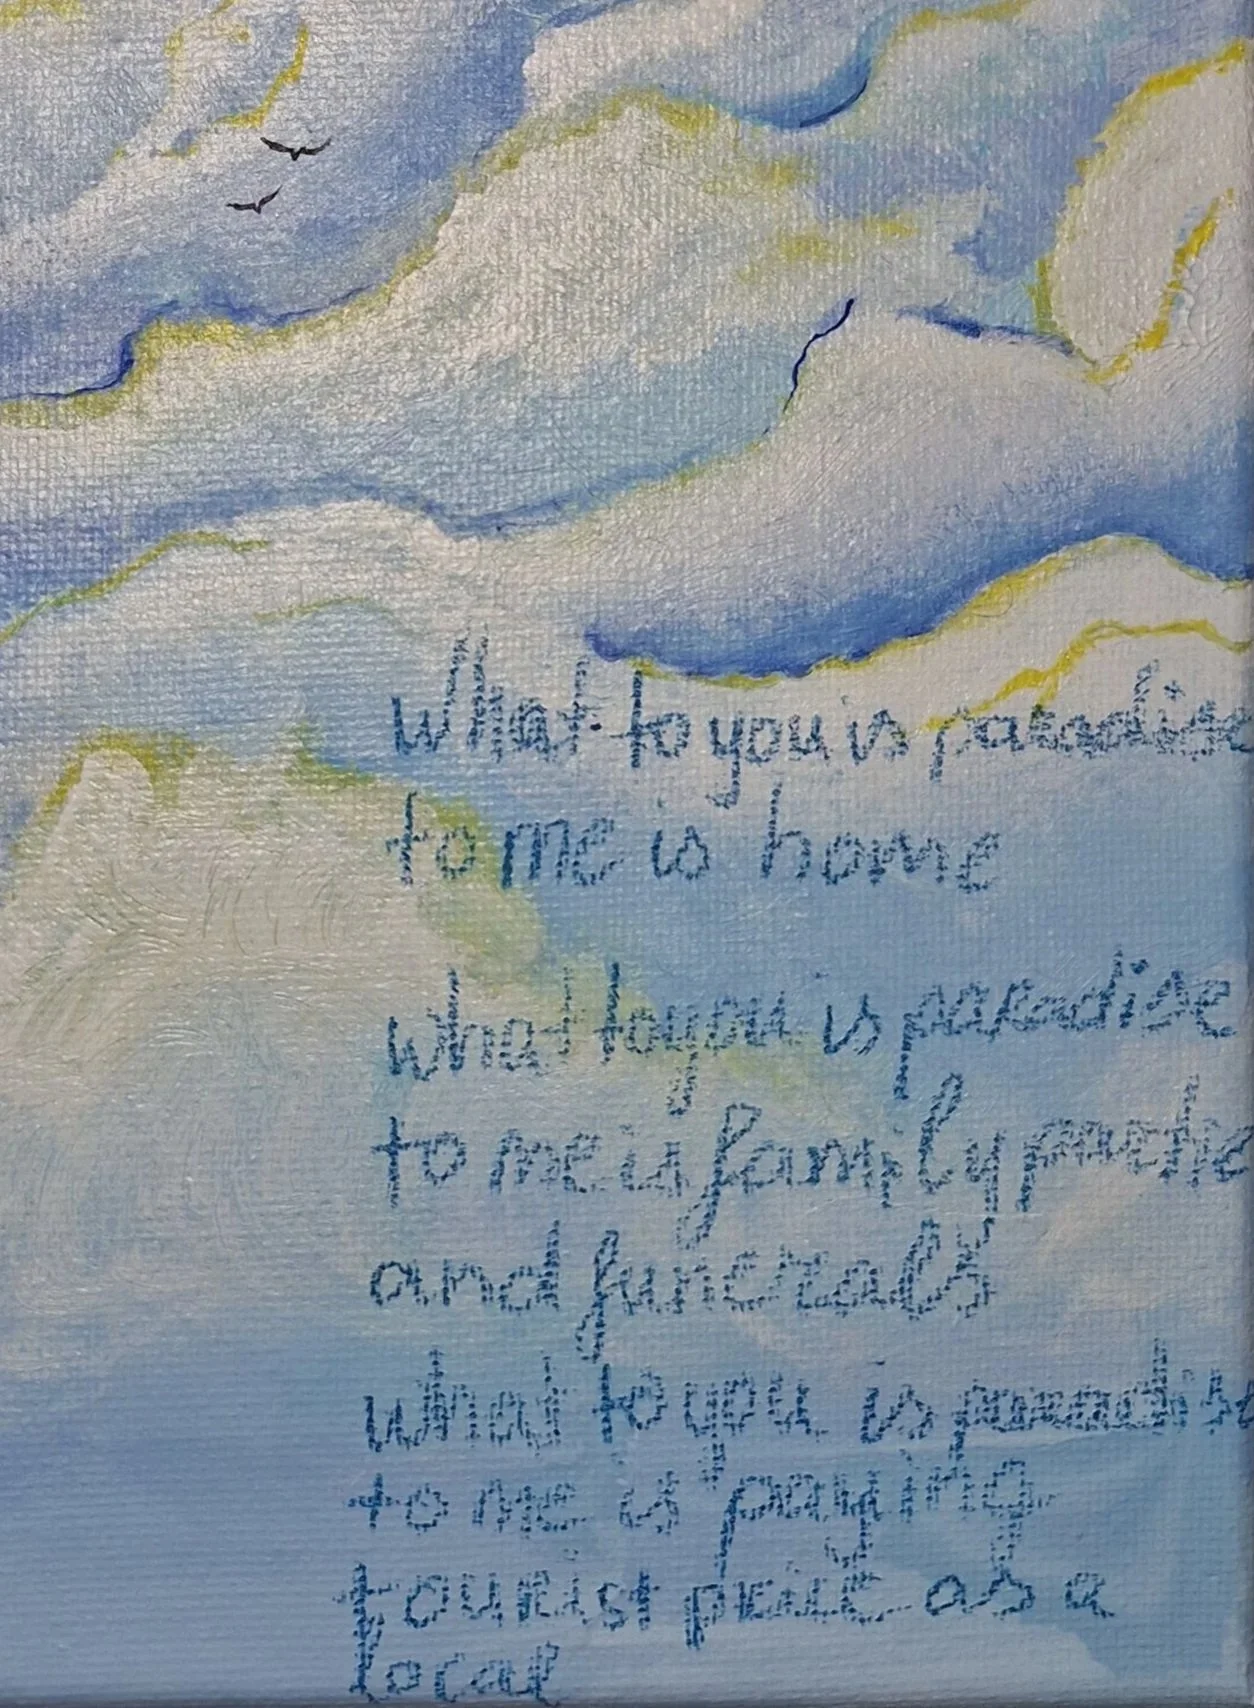 What to you is paradise
to me is home
what to you is paradise
to me is family
and funerals
what to you is paradise
to me is paying
tourist price as a
local